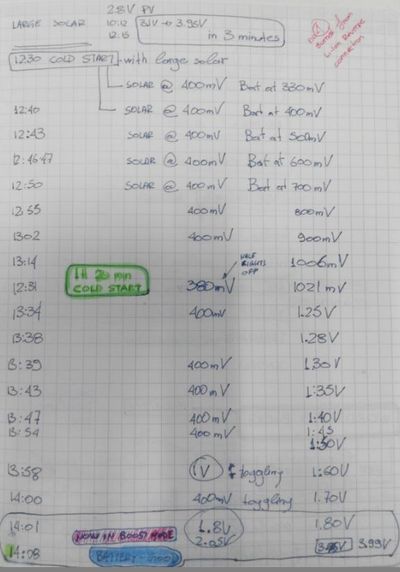 2.8V PV
LARGE SOLAR 10:12 3.1V → 3.95V
12:15 in 3 minutes
12:30 COLD START - with large solar
SOLAR @ 400mV Bat at 330mV
12:40 SOLAR @ 400mV Bat at 400mV
12:43 SOLAR @ 400mV Bat at 500mV
12:46:47 SOLAR @ 400mV Bat at 600mV
12:50 SOLAR @ 400mV Bat at 700mV
12:55 400mV 800mV
13:02 400mV 900mV
13:14 HALF LIGHTS OFF 1006mV
12:31 1H 20 min COLD START 380mV 1021mV
13:34 400mV 1.25V
13:38 1.28V
13:39 400mV 1.30V
13:43 400mV 1.35V
13:47 400mV 1.40V
13:54 400mV 1.45
1.50V
13:58 1V toggling 1.60V
14:00 400mV toggling 1.70V
14:01 NOW IN BOOST MODE 1.8V 1.80V
14:08 BATTERY GOOD 2.05V 3.99V